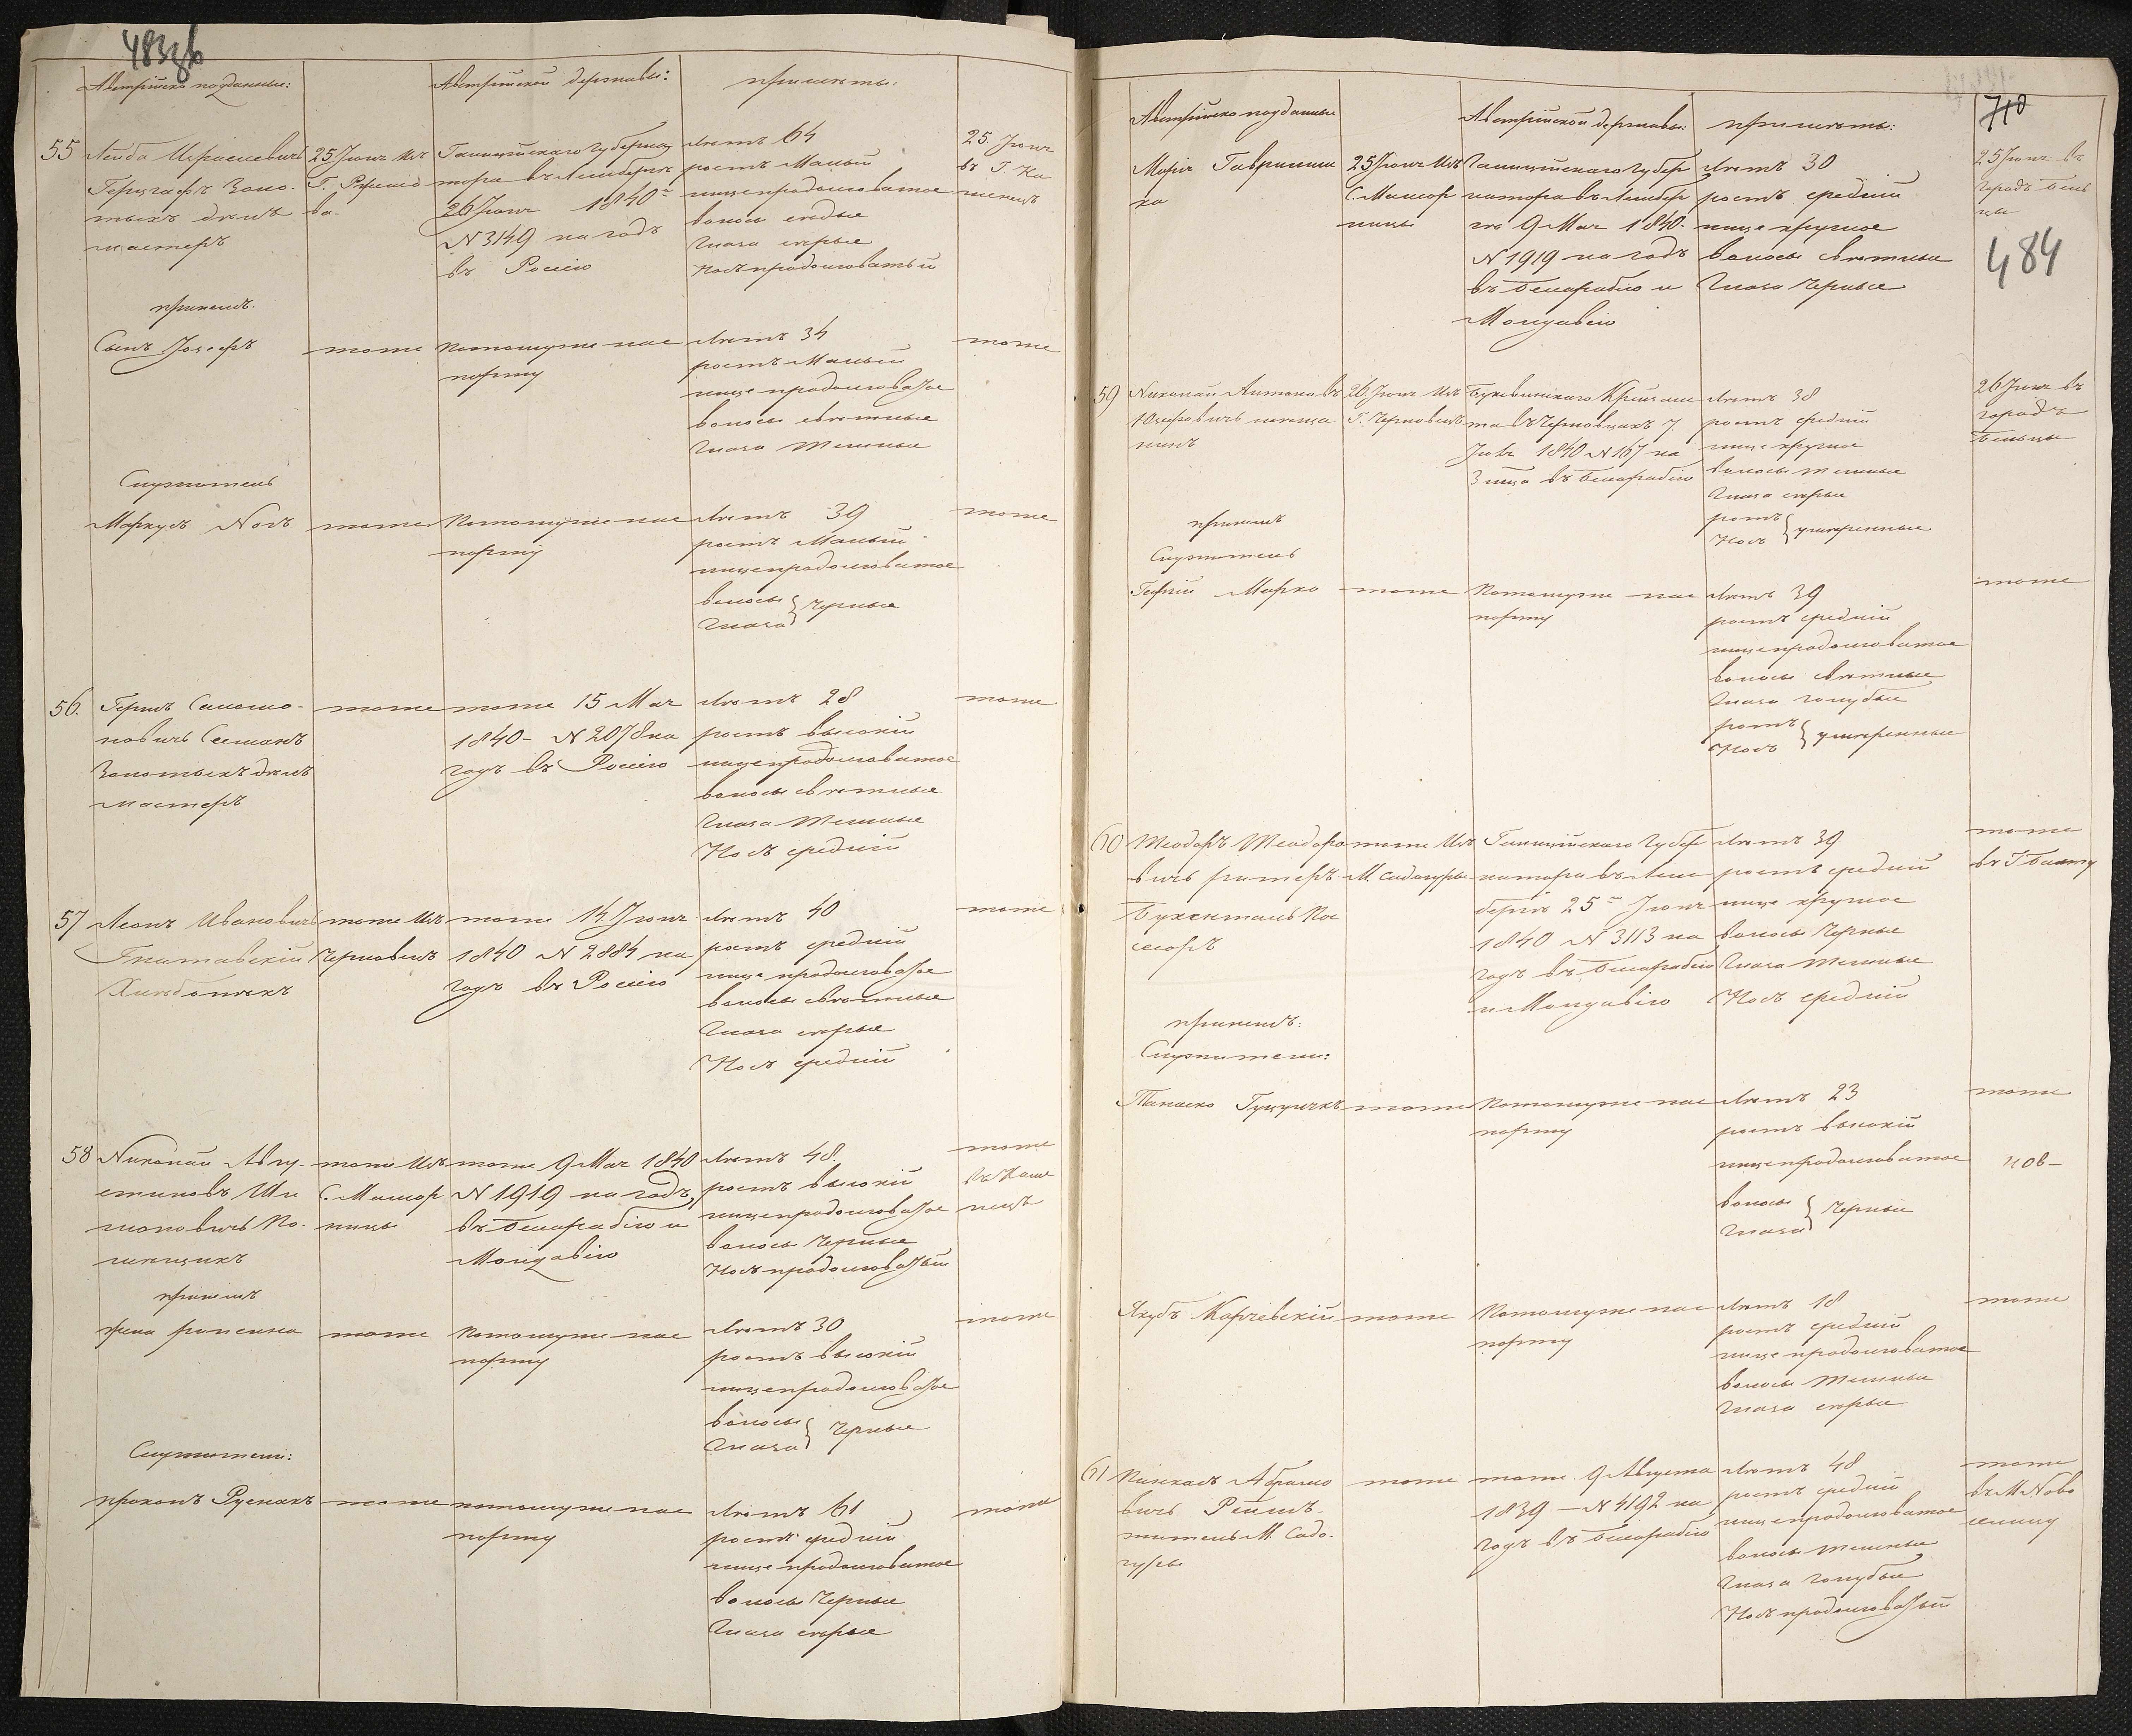 483об
Австрійско подданные:
Австрійской державы:
приметы:
55
Лейба Израелевичь
Герцграфъ Золо-
тыхъ делъ
мастеръ
25 Іюня Изъ
Г.
ва-
Галиційскаго Губерна
тора въ Лемберге
26 Іюня 1840-
N 3149 на годъ
въ Россію
Летъ 64
ростъ Малый
лице продолговатое
волосы седые
Глаза серые
Носъ продолговатый
25. Іюня
въ Г. Ка
менецъ
при немъ.
Сынъ Іозефъ
тоже
Потомуже пас
порту
Летъ 34
ростъ Малый
лице продолговатое
волосы светлые
Глаза Темные
тоже
Служитель
Маркусъ
тоже
Потомуже пас
порту
Летъ 39
ростъ Малый
лице продолговатое
волосы
Глаза } черные
тоже
56.
Гершъ Саломо-
новичь
Золотыхъ делъ
Мастеръ
тоже
тоже 15 Мая
1840- N 2078 на
годъ въ Россію
Летъ 28
ростъ высокій
лице продолговатое
волосы светлые
Глаза Темные
Носъ средній
тоже
57
Леонъ Ивановичь
Гнатавскій
тоже Изъ
Черновецъ
тоже 14 Іюня
1840 N 2884 на
годъ въ Россію
Летъ 40
ростъ средній
лице продолговатое
волосы светлые
Глаза серые
Носъ средній
тоже
58
Николай Авгу-
стиновъ Ши
моновичь По-
мещикъ
тоже Изъ
С.
тоже 9 Мая 1840
N 1919 на годъ,
въ Бесарабію и
Молдавію
Летъ 48.
ростъ высокій
лице продолговатое
волосы Черные
Носъ продолговатый
тоже
въ Каме
нецъ
при немъ
жена
тоже
Потомуже пас
порту
Летъ 30
ростъ высокій
лице продолговатое
волосы
Глаза } черные
тоже
Служители:
Проконъ Руснакъ
тоже
потомуже пас
порту
Летъ 61
ростъ средній
лице продолговатое
волосы Черные
Глаза серые
тоже
710
Австрійско подданные
Австрійской державы:
приметы:
Марія Гаврилиш
ка
25 Іюня Изъ
С.
Галиційскаго Губер
натора въ Лембер
ге 9 Мая 1840.
N 1919 на годъ
въ Бесарабію и
Молдавію
Летъ 30
ростъ средній
лице круглое
волосы светлые
Глаза Черные
25 Іюня въ
городъ Бель
цы
484
59
Николай Антоновъ
Юзефовичь
26 Іюня Изъ
Г. Черновецъ
Буковинскаго Крейзам
та въ Черновцахъ 7.
1840 N 167 на
3 въ Бесарабію
Летъ 38
ростъ средній
лице круглое
волосы темные
Глаза серые
ротъ
Носъ } умеренные
26 Іюня въ
городъ
Бельцы
при немъ
Служитель
Георгій Марко
тоже
Потомуже пас
порту
Летъ 39
ростъ средній
лице продолговатое
волосы светлые
Глаза голубые
ротъ
Носъ } умеренные
тоже
60
Теодоръ Теодоро
вичь ритеръ
тоже Изъ
М. Садагуры
Галиційскаго Губер
натора въ Лем
берге 25 Іюня
1840 N 3113 на
годъ въ Бесарабію
и Молдавію
Летъ 39
ростъ средній
лице круглое
волосы Черные
Глаза темные
Носъ средній
тоже
въ Г Балту
при немъ:
Служители:
Танаско
тоже
Потомуже пас
порту
Летъ 23
ростъ высокій
лице продолговатое
волосы
Глаза } Черные
тоже
Якубъ Карчевскій
тоже
Потомуже пас
порту
Летъ 18
ростъ средній
лице продолговатое
волосы темные
Глаза серые
тоже
61
Пинкасъ Абрамо
вичь
житель М. Сада-
гуры
тоже
тоже 9 Августа
1839 - N 4192 на
годъ въ Бесарабію
Летъ 48
ростъ средній
лице продолговатое
волосы темные
Глаза голубые
Носъ продолговатый
тоже
въ М Ново
селицу